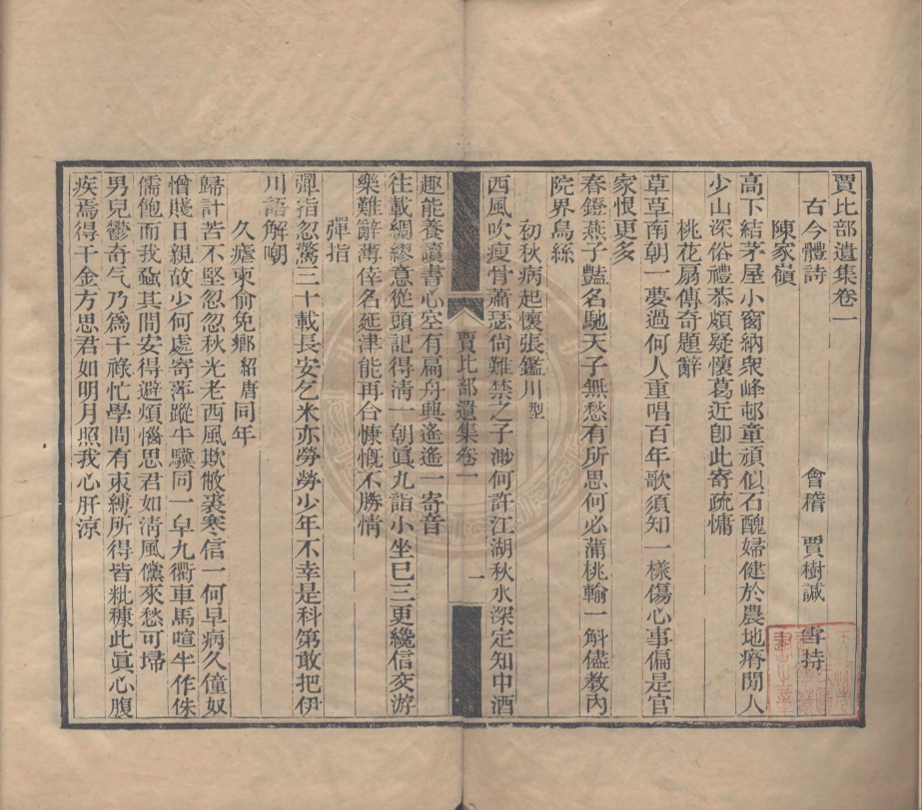 賈比部遺集卷一
古今體詩
會稽 賈樹諴 雪持
陳家嶺
高下結茅屋小窗納衆峰邨童頑似石醜婦健於農地瘠閒人
少山深俗禮恭頗疑懷葛近卽此寄疏慵
桃花扇傳奇題辭
草草南朝一夢過何人重唱百年歌須知一樣傷心事偏是官
家恨更多
春鐙燕子豔名馳天子無愁有所思何必蒲桃輸一斛儘教內
院界烏絲
初秋病起懷張鑑川型
西風吹瘦骨蕭瑟尙難禁之子渺何許江湖秋水深定知中酒
賈比部遺集卷一
一
趣能養讀書心空有扁舟興遙遙一寄音
往載綢繆意從頭記得淸一朝眞九詣小坐巳三更纔信交游
樂難辭薄倖名延津能再合慷慨不勝情
彈指
彈指忽驚三十載長安乞米亦勞勞少年不幸是科第敢把伊
川語解嘲
久瘧柬俞免鄉紹唐同年
歸計苦不堅忽忽秋光老西風欺敝裘寒信一何早病久僮奴
憎賤日親故少何處寄萍蹤牛驥同一皁九衢車馬喧半作侏
儒飽而我蝨其間安得避煩惱思君如淸風儻來愁可埽
男兒鬱奇气乃爲干祿忙學問有束縛所得皆粃糠此眞心腹
疾焉得千金方思君如明月照我心肝涼